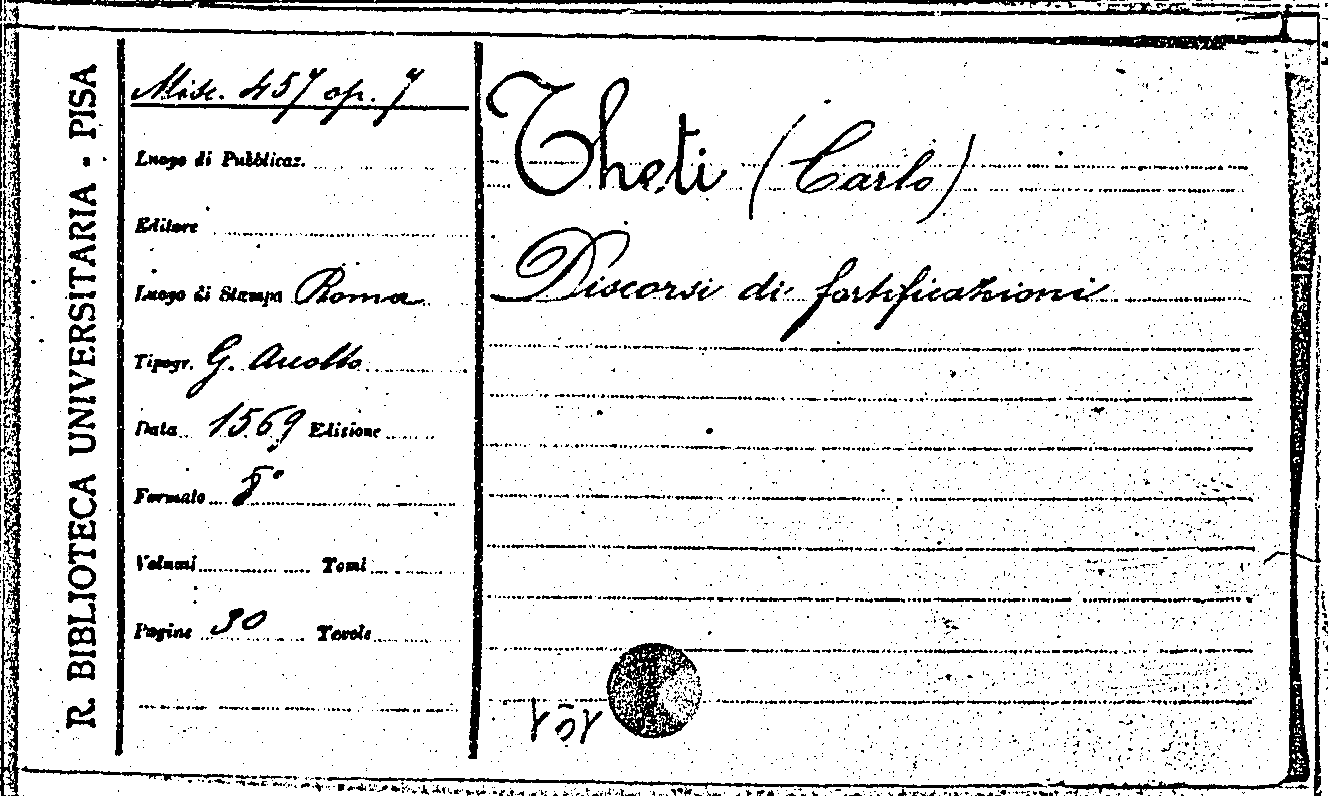 R. BIBLIOTECA UNIVERSITARIA - PISA
Misc. 457 op. 7
Luogo di Pubblicaz.
Editore
Luogo di Stampa Roma
Tipogr. G. Accolto
Data 1569 Edizione
Formato 8°
Volumi Tomi
Pagine 30 Tavole
Theti (Carlo)
Discorsi di fortificazioni